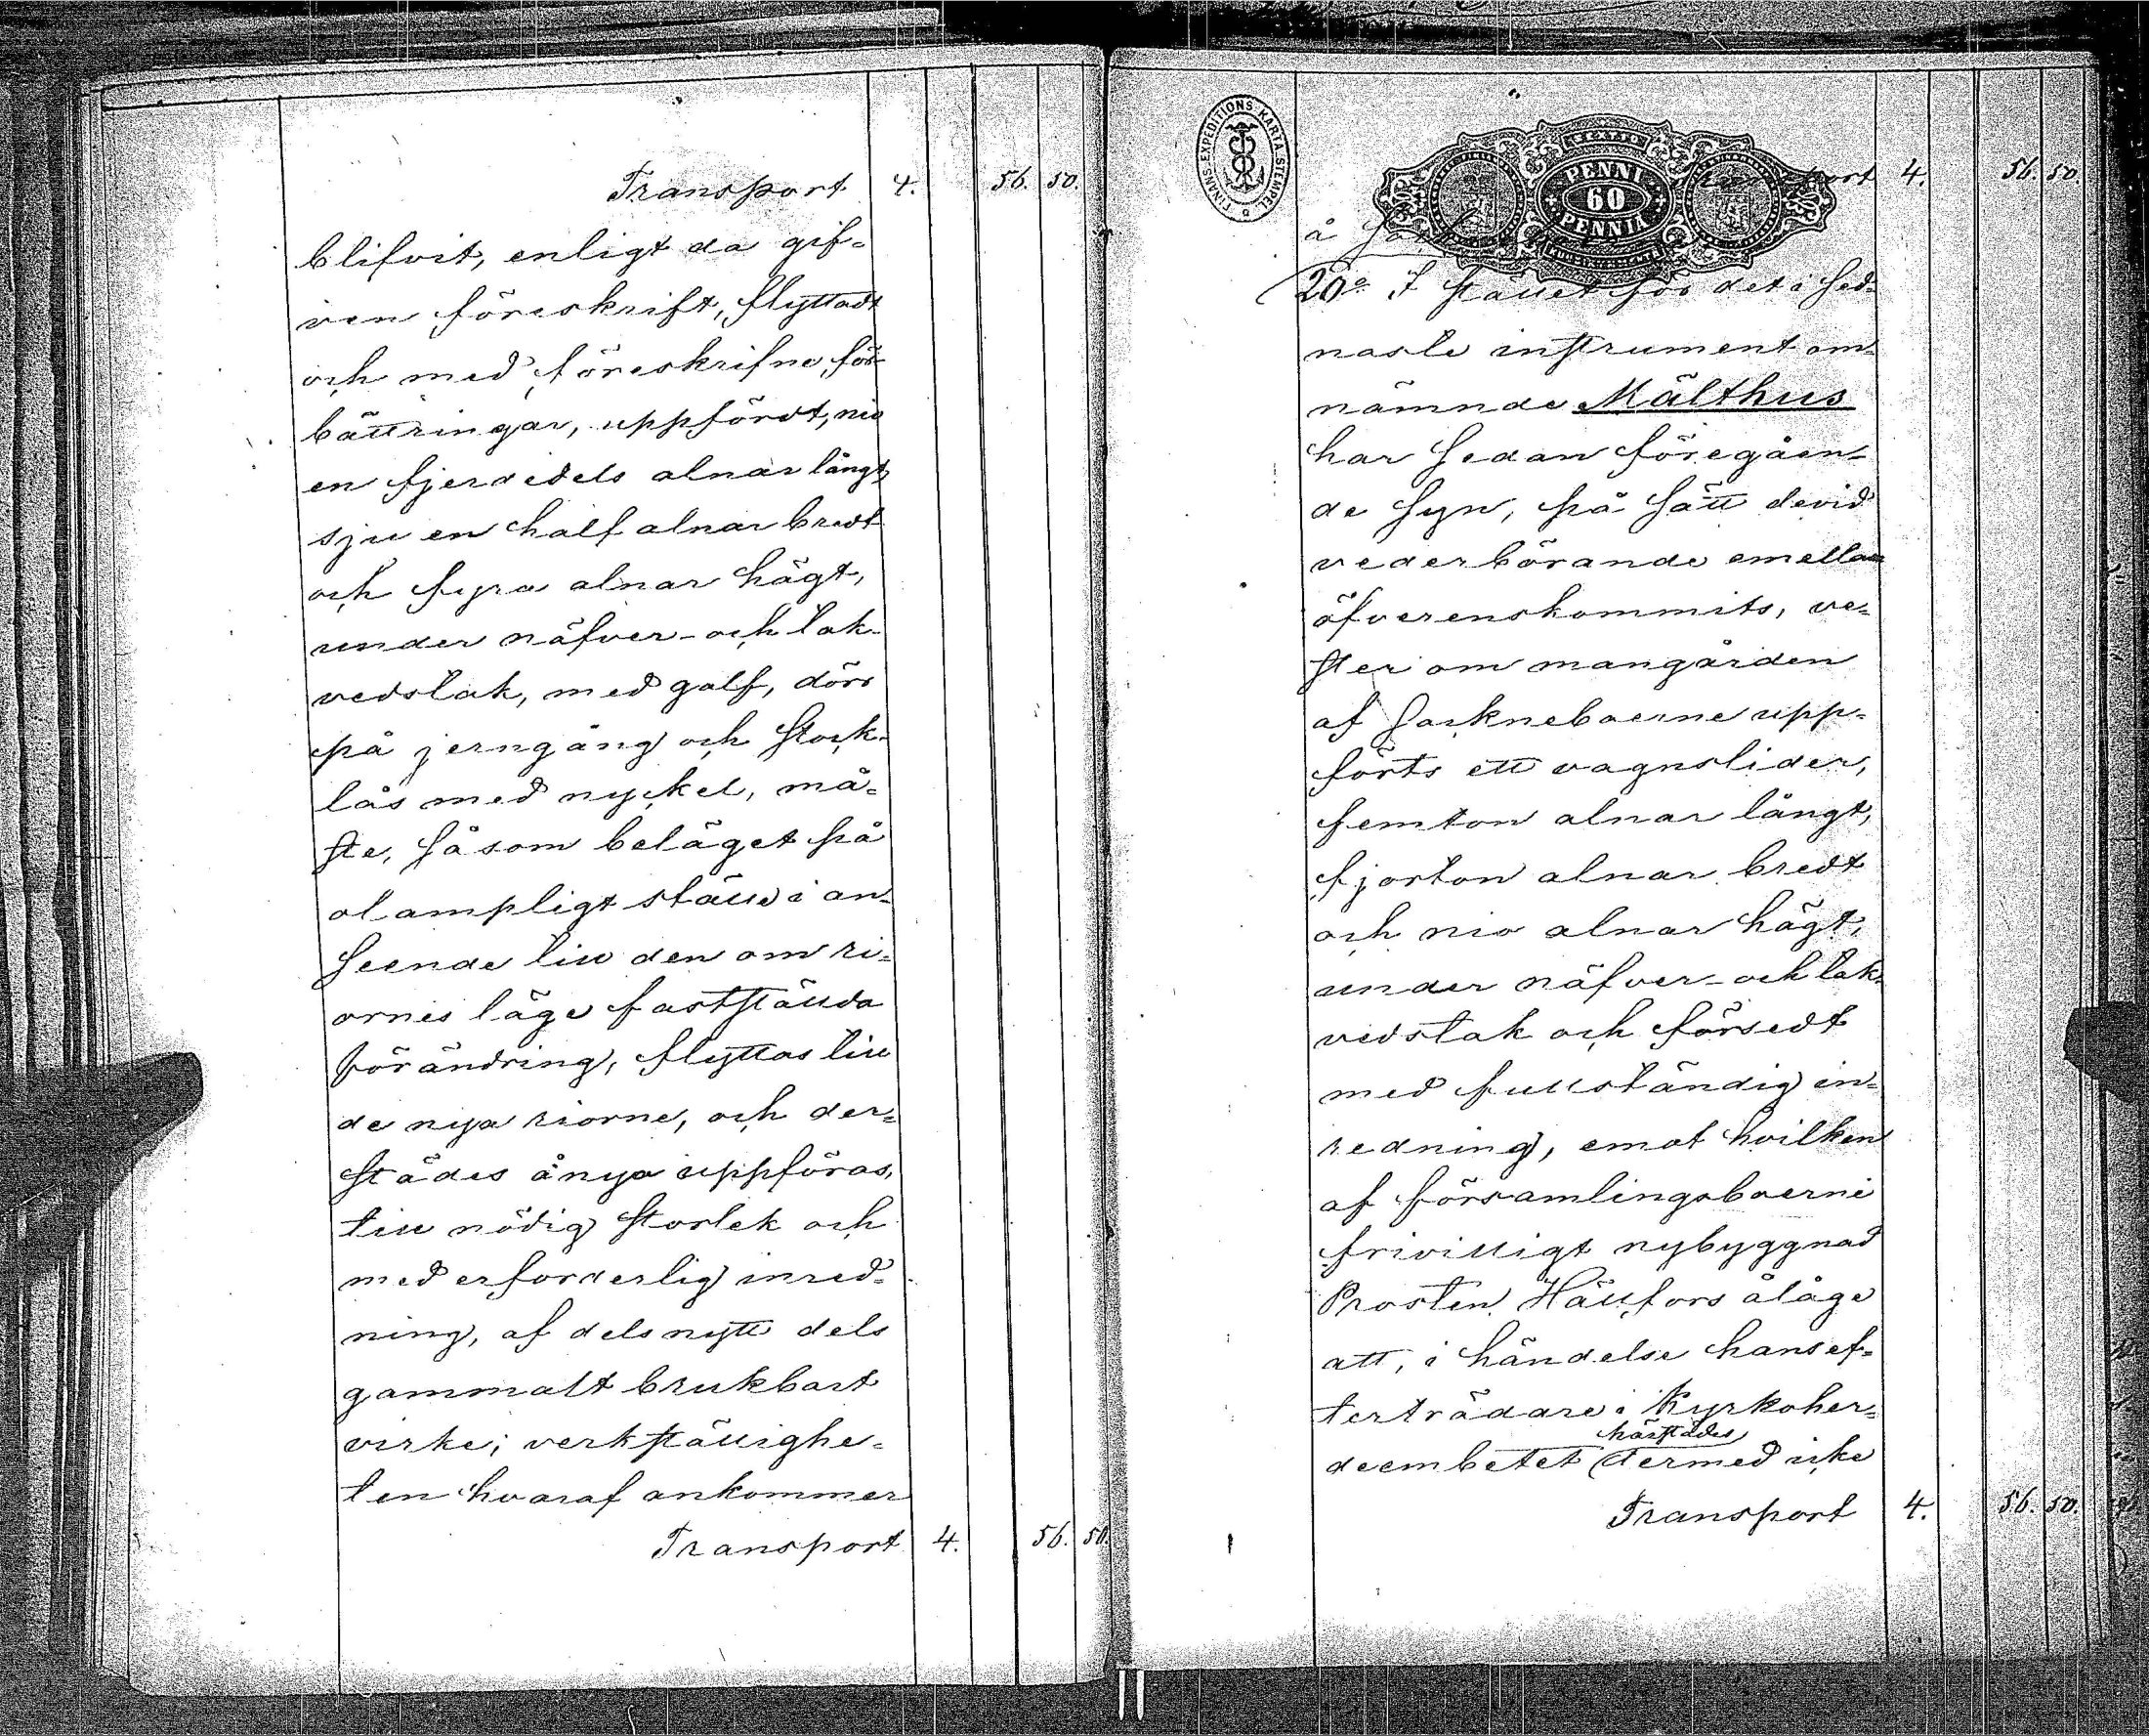 Transport 4. 56. 50.
blifvit, enligt da gif-
ven föreskrift, flyttadt
och med föreskrifne för-
bättringar, uppfördt, nio
en fjerdedels alnar långt,
sju en half alnar bredt
och fyra alnar högt,
under näfver- och tak-
vedstak, med golf, dörr
på jerngång och stock-
lås med nyckel, må-
ste, såsom beläget på
olämpligt ställe i an-
seende till den om ri-
ornes läge fastställda
förändring, flyttas till
de nya riorne, och der-
städes ånyo uppföras,
till nödig storlek och
med erforderlig inred-
ning, af dels nytt dels
gammalt brukbart
virke; verkställighe-
ten hvaraf ankommer
Transport 4. 56. 50.
FINANS-EXPEDITIONS KARTA.STEMPEL
PENNI
60
PENNIÄ
port 4. 56. 50.
å
20o I stället för det i sed-
naste instrument om-
nämnde Mälthus
har sedan föregåen-
de syn, på sätt devid
vederbörande emellan
öfverenskommits, ve-
ster om mangården
af Sockneboerne upp-
förts ett vagnslider,
femton alnar långt,
fjorton alnar bredt
och nio alnar högt,
under näfver- och tak-
vedstak och försedt
med fullständig in-
redning, emot hvilken
af församlingsboerne
frivilligt nybyggnad
Prosten Hällfors ålåge
att, i händelse hans ef-
terträdare i Kyrkoher-
härstädes
deembetet dermed icke
Transport 4. 56. 50.